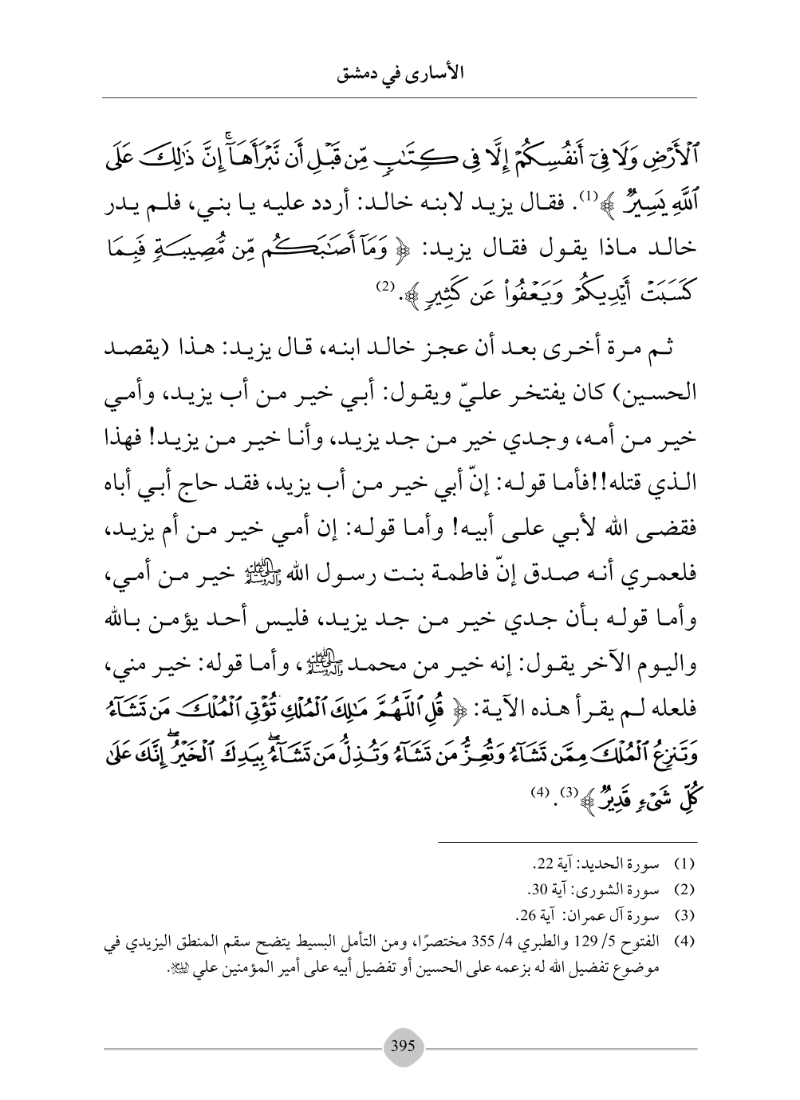 الأسارى في دمشق
ٱلْأَرْضِ وَلَا فِىٓ أَنفُسِكُمْ إِلَّا فِى كِتَٰبٍ مِّن قَبْلِ أَن نَّبْرَأَهَآ ۚ إِنَّ ذَٰلِكَ عَلَى
ٱللَّهِ يَسِيرٌ ﴾(1). فقال يزيد لابنه خالد: أردد عليه يا بني، فلم يدر
خالد ماذا يقول فقال يزيد: ﴿ وَمَآ أَصَٰبَكُم مِّن مُّصِيبَةٍ فَبِمَا
كَسَبَتْ أَيْدِيكُمْ وَيَعْفُوا۟ عَن كَثِيرٍ ﴾.(2)
ثم مرة أخرى بعد أن عجز خالد ابنه، قال يزيد: هذا (يقصد
الحسين) كان يفتخر عليّ ويقول: أبي خير من أب يزيد، وأمي
خير من أمه، وجدي خير من جد يزيد، وأنا خير من يزيد! فهذا
الذي قتله!!فأما قوله: إنّ أبي خير من أب يزيد، فقد حاج أبي أباه
فقضى الله لأبي على أبيه! وأما قوله: إن أمي خير من أم يزيد،
فلعمري أنه صدق إنّ فاطمة بنت رسول الله ﷺ خير من أمي،
وأما قوله بأن جدي خير من جد يزيد، فليس أحد يؤمن بالله
واليوم الآخر يقول: إنه خير من محمد ﷺ، وأما قوله: خير مني،
فلعله لم يقرأ هذه الآية: ﴿ قُلِ ٱللَّهُمَّ مَٰلِكَ ٱلْمُلْكِ تُؤْتِى ٱلْمُلْكَ مَن تَشَآءُ
وَتَنزِعُ ٱلْمُلْكَ مِمَّن تَشَآءُ وَتُعِزُّ مَن تَشَآءُ وَتُذِلُّ مَن تَشَآءُ ۖ بِيَدِكَ ٱلْخَيْرُ ۖ إِنَّكَ عَلَىٰ
كُلِّ شَىْءٍ قَدِيرٌ ﴾(3).(4)
(1) سورة الحديد: آية 22.
(2) سورة الشورى: آية 30.
(3) سورة آل عمران: آية 26.
(4) الفتوح 5/ 129 والطبري 4/ 355 مختصرًا، ومن التأمل البسيط يتضح سقم المنطق اليزيدي في
موضوع تفضيل الله له بزعمه على الحسين أو تفضيل أبيه على أمير المؤمنين علي .
395